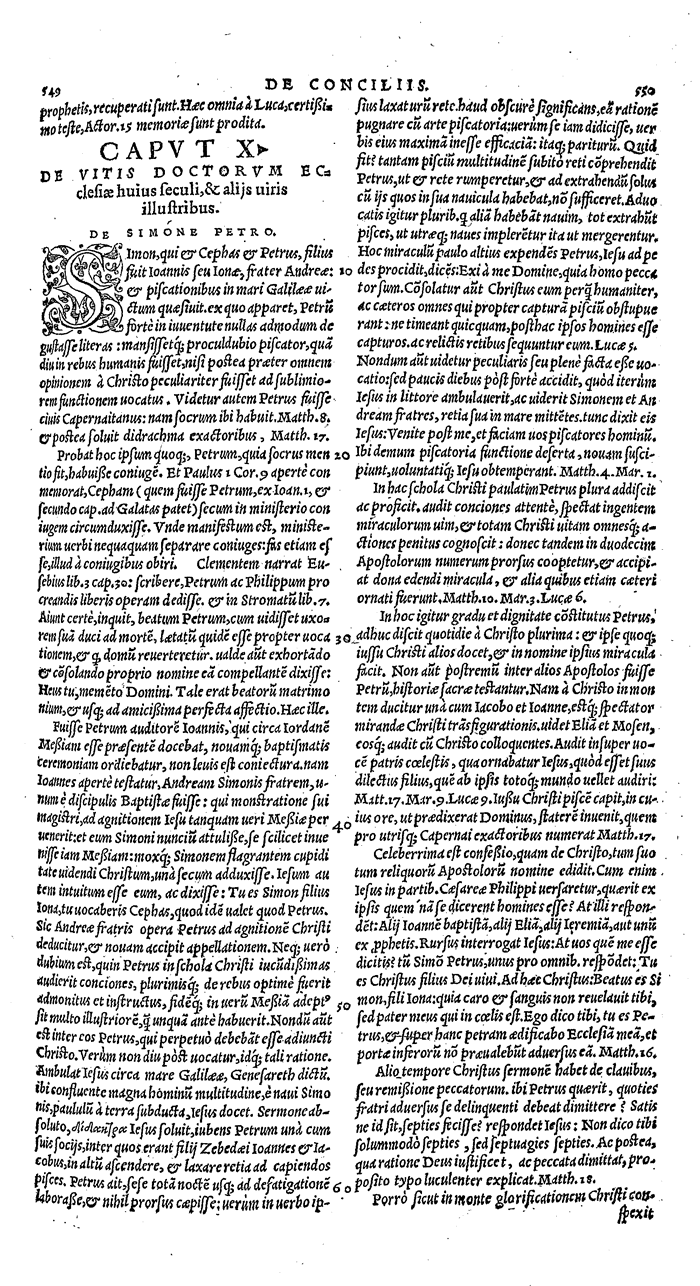 549
DE CONCILIIS.
550
prophetis, recuperati sunt. Hæc omnia à Luca, certißi=
mo teste, Actor. 15 memoriæ sunt prodita.
CAPVT X.
DE VITIS DOCTORVM EC=
clesiæ huius seculi, & alijs uiris
illustribus.
DE SIMONE PETRO.
Simon, qui & Cephas & Petrus, filius
fuit Ioannis seu Ionæ, frater Andreæ:
& piscationibus in mari Galilææ ui=
ctum quæsiuit. ex quo apparet, Petrū
fortè in iuuentute nullas admodum de
gustasse literas: mansissetq́; proculdubio piscator, quā
diu in rebus humanis fuisset, nisi postea præter omnem
opinionem à Christo peculiariter fuisset ad sublimio=
rem functionem uocatus. Videtur autem Petrus fuisse
ciuis Capernaitanus: nam socrum ibi habuit. Matth. 8.
& postea soluit didrachma exactoribus, Matth. 17.
Probat hoc ipsum quoq;, Petrum, quia socrus men
tio fit, habuisse coniugē. Et Paulus 1 Cor. 9 apertè con
memorat, Cepham (quem fuisse Petrum, ex Ioan. 1, &
secundo cap. ad Galatas patet) secum in ministerio con
iugem circumduxisse. Vnde manifestum est, ministe=
rium uerbi nequaquam separare coniuges: fas etiam es
se, illud à coniugibus obiri. Clementem narrat Eu=
sebius lib. 3 cap. 30: scribere, Petrum ac Philippum pro
creandis liberis operam dedisse. & in Stromatū lib. 7.
Aiunt certè, inquit, beatum Petrum, cum uidisset uxo=
rem suā duci ad mortē, lætatū quidē esse propter uoca
tionem, & q̀ domū reuerteretur. ualde aūt exhortādo
& cōsolando proprio nomine eā compellantē dixisse:
Heus tu, memēto Domini. Tale erat beatorū matrimo
nium, & usq; ad amicißima perfecta affectio. Hæc ille.
Fuisse Petrum auditorē Ioannis, qui circa Iordanē
Meßiam esse præsentē docebat, nouamq́; baptismatis
ceremoniam ordiebatur, non leuis est coniectura. nam
Ioannes apertè testatur, Andream Simonis fratrem, u=
num è discipulis Baptistæ fuisse: qui monstratione sui
magistri, ad agnitionem Iesu tanquam ueri Meßiæ per
uenerit: et eum Simoni nunciū attulisse, se scilicet inue
nisse iam Meßiam: moxq́; Simonem flagrantem cupidi
tate uidendi Christum, unà secum adduxisse. Iesum au
tem intuitum esse eum, ac dixisse: Tu es Simon filius
Iona, tu uocaberis Cephas, quod idē ualet quod Petrus.
Sic Andreæ fratris opera Petrus ad agnitionē Christi
deducitur, & nouam accipit appellationem. Neq; uerò
dubium est, quin Petrus in schola Christi iucūdißimas
audierit conciones, plurimisq́; de rebus optimè fuerit
admonitus et instructus, fidēq́; in uerū Meßiā adeptꝰ
sit multo illustriorē, q̄ unquā antè habuerit. Nondū aūt
est inter eos Petrus, qui perpetuò debebāt esse adiuncti
Christo. Verùm non diu pòst uocatur, idq́; tali ratione.
Ambulat Iesus circa mare Galilææ, Genesareth dictū.
ibi confluente magna hominū multitudine, è naui Simo
nis, paululū à terra subducta, Iesus docet. Sermone ab=
soluto, Iesus soluit, iubens Petrum unà cum
suis socijs, inter quos erant filij Zebedæi Ioannes & Ia=
cobus, in altū ascendere, & laxare retia ad capiendos
pisces. Petrus ait, sese totā noctē usq; ad defatigationē
laborasse, & nihil prorsus cæpisse: uerùm in uerbo ip=
10
20
30
40
50
60
sius laxaturū rete. haud obscurè significans, eā rationē
pugnare cū arte piscatoria: uerùm se iam didicisse, uer
bis eius maximā inesse efficaciā: itaq; pariturū. Quid
fit? tantam pisciū multitudinē subitò reti cōprehendit
Petrus, ut & rete rumperetur, & ad extrahendū solus
cū ijs quos in sua nauicula habebat, nō sufficeret. Aduo
catis igitur plurib. q̀ aliā habebāt nauim, tot extrahūt
pisces, ut utræq; naues implerētur ita ut mergerentur.
Hoc miraculū paulo altius expendēs Petrus, Iesu ad pe
des procidit, dicēs: Exi à me Domine, quia homo pecca
tor sum. Cōsolatur aūt Christus eum perq̄ humaniter,
ac cæteros omnes qui propter capturā pisciū obstupue
rant: ne timeant quicquam, posthac ipsos homines esse
capturos. ac relictis retibus sequuntur eum. Lucæ 5.
Nondum aūt uidetur peculiaris seu plenè facta esse uo=
catio: sed paucis diebus pòst fortè accidit, quòd iterum
Iesus in littore ambulauerit, ac uiderit Simonem et An
dream fratres, retia sua in mare mittētes. tunc dixit eis
Iesus: Venite post me, et faciam uos piscatores hominū.
Ibi demum piscatoria functione deserta, nouam susci=
piunt, uoluntatiq́; Iesu obtemperant. Matth. 4. Mar. 1.
In hac schola Christi paulatim Petrus plura addiscit
ac proficit. audit conciones attentè, spectat ingentem
miraculorum uim, & totam Christi uitam omnesq́; a=
ctiones penitus cognoscit: donec tandem in duodecim
Apostolorum numerum prorsus cooptetur, & accipi=
at dona edendi miracula, & alia quibus etiam cæteri
ornati fuerunt. Matth. 10. Mar. 3. Lucæ 6.
In hoc igitur gradu et dignitate cōstitutus Petrus,
adhuc discit quotidie à Christo plurima: & ipse quoq;
iussu Christi alios docet, & in nomine ipsius miracula
facit. Non aūt postremū inter alios Apostolos fuisse
Petrū, historiæ sacræ testantur. Nam à Christo in mon
tem ducitur unà cum Iacobo et Ioanne, estq́; spectator
mirandæ Christi trāsfigurationis. uidet Eliā et Mosen,
eosq́; audit cū Christo colloquentes. Audit insuper uo=
cē patris cœlestis, qua ornabatur Iesus, quòd esset suus
dilectus filius, quē ab ipsis totoq́; mundo uellet audiri:
Matt. 17. Mar. 9. Lucæ 9. Iussu Christi piscē capit, in cu=
ius ore, ut prædixerat Dominus, staterē inuenit, quem
pro utrisq; Capernai exactoribus numerat Matth. 17.
Celeberrima est confeßio, quam de Christo, tum suo
tum reliquorū Apostolorū nomine edidit. Cum enim
Iesus in partib. Cæsareæ Philippi uersaretur, quærit ex
ipsis quem nā se dicerent homines esse? At illi respon=
dēt: Alij Ioannē baptistā, alij Eliā, alij Ieremiā, aut unū
ex ꝓphetis. Rursus interrogat Iesus: At uos quē me esse
dicitis? tū Simō Petrus, unus pro omnib. respōdet: Tu
es Christus filius Dei uiui. Ad hæc Christus: Beatus es Si
mon, fili Iona: quia caro & sanguis non reuelauit tibi,
sed pater meus qui in cœlis est. Ego dico tibi, tu es Pe=
trus, & super hanc petram ædificabo Ecclesiā meā, et
portæ inferorū nō præualebūt aduersus eā. Matth. 16.
Alio tempore Christus sermonē habet de clauibus,
seu remißione peccatorum. ibi Petrus quærit, quoties
fratri aduersus se delinquenti debeat dimittere? Satis
ne id sit, septies fecisse? respondet Iesus: Non dico tibi
solummodò septies, sed septuagies septies. Ac postea,
qua ratione Deus iustificet, ac peccata dimittat, pro=
posito typo luculenter explicat. Matth. 18.
Porrò sicut in monte glorificationem Christi con=
spexit